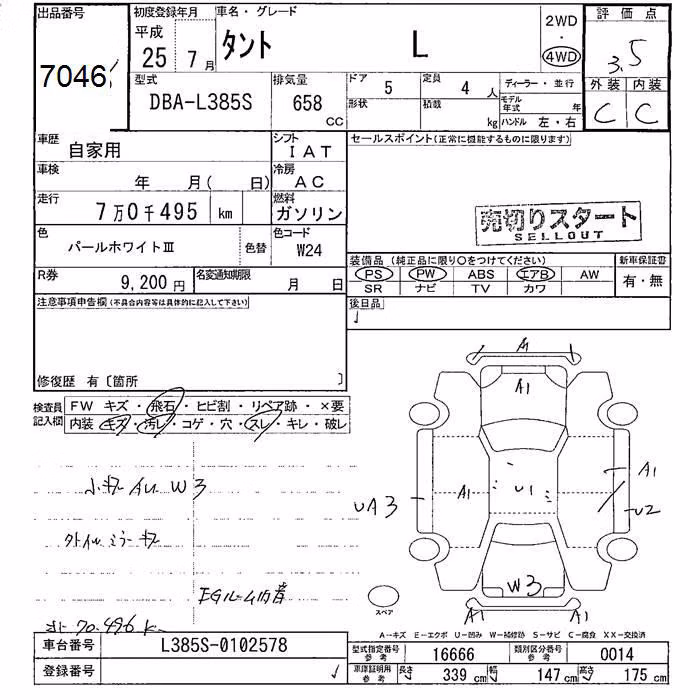 出品番号 初度登録年月 車名・グレード 2WD 評価点
7046 平成 25年 7月 タント L ・ 4WD 3.5
型式 DBA-L385S 排気量 658 CC ドア 5 定員 4人 ディーラー・並行 外装 内装
形状 積載 kg モデル年式 年 ハンドル 左・右 C C
車歴 自家用 シフト IAT セールスポイント(正常に機能するものに限ります)
車検 年 月( 日) 冷房 AC
走行 7万0千495 km 燃料 ガソリン
売切りスタート
SELLOUT
色 パールホワイトⅢ 色替 色コード W24
装備品(純正品に限り○をつけてください) 新車保証書
R券 9,200円 名変通知期限 月 日 PS PW ABS エアB AW 有・無
SR ナビ TV カワ
注意事項申告欄(不具合内容等は具体的に記入して下さい) 後日品
修復歴 有〔箇所 〕
検査員記入欄 FW キズ・飛石・ヒビ割・リペア跡・×要
内装・キズ・汚レ・コゲ・穴・スレ・キレ・破レ
A1
A1
小キズ AU W3
UA3 A1 U1 A1
U2
外ドアミラーキズ
EGルーム内音
W3
スペア
A1 A1
70.496 K
A－キズ E－エクボ U－凹み W－補修跡 S－サビ C－腐食 XX－交換済
車台番号 L385S-0102578 型式指定番号 参考 16666 類別区分番号 参考 0014
登録番号 車庫証明用 参考 長さ 339 cm 幅 147 cm 高さ 175 cm